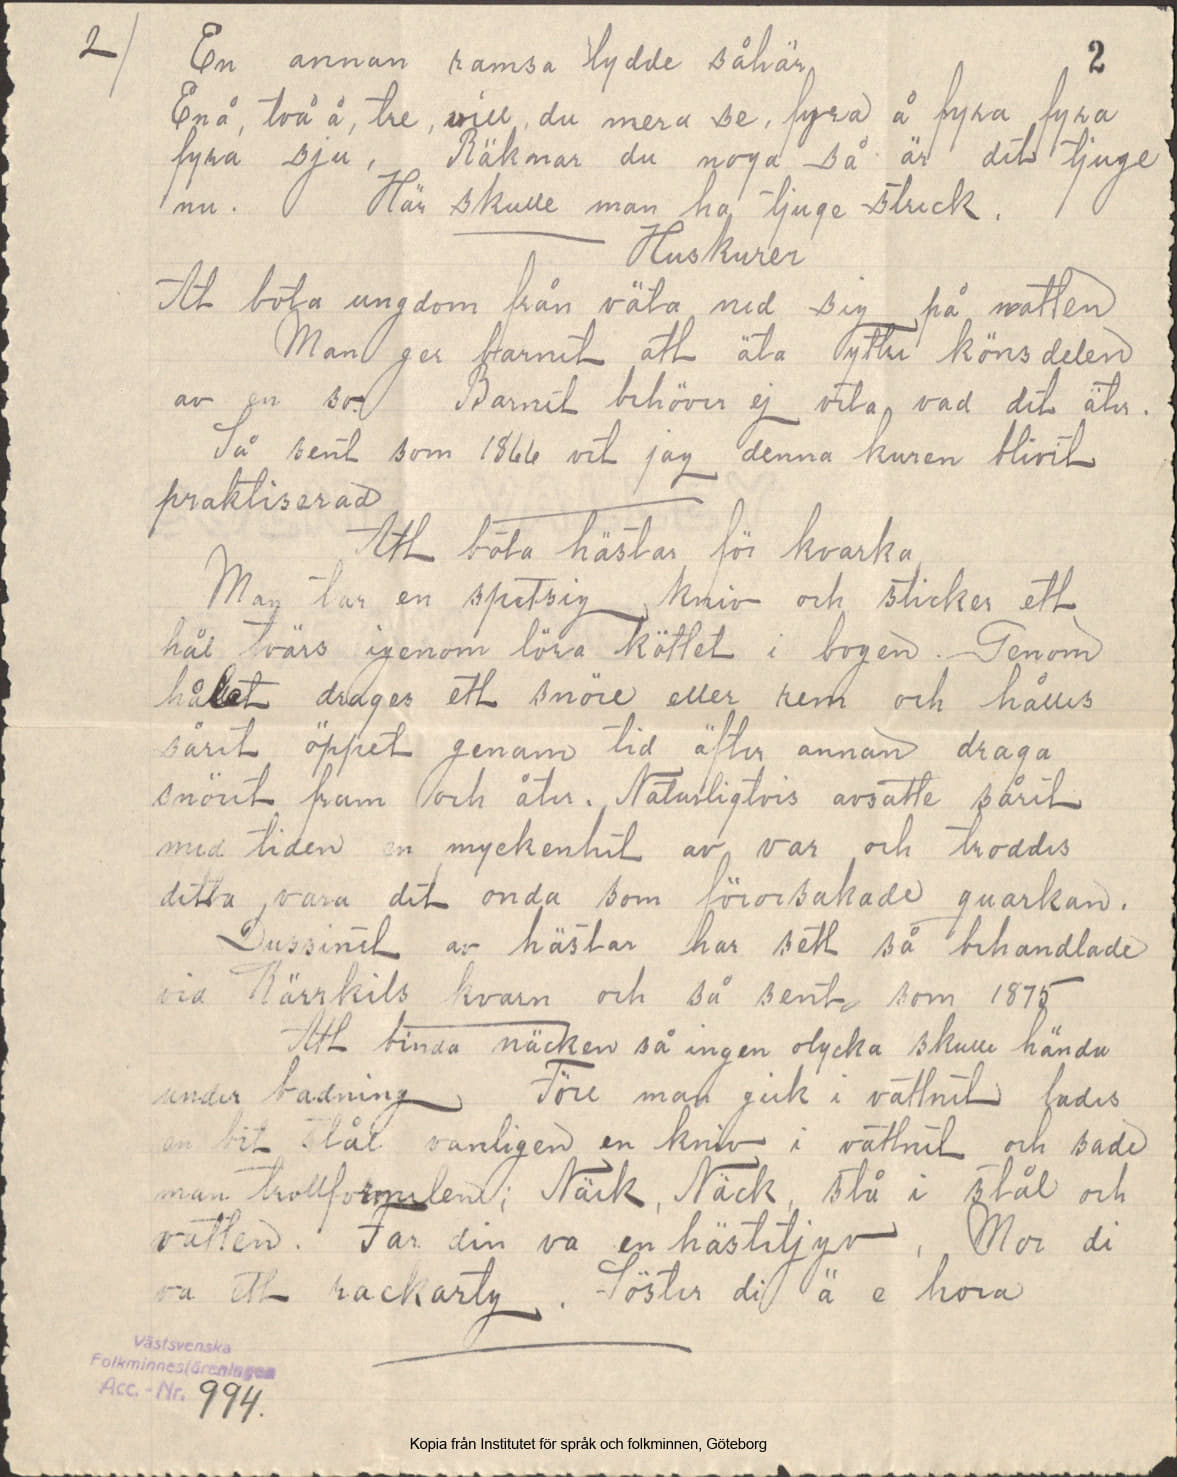 2/ En annan ramsa lydde såhär 2
En å, två å, tre, vill du mera se, fyra å fyra fyra
fyra sju, Räknar du noga så är det tjuge
nu. Här skulle man ha tjuge streck.
Huskurer
At bota ungdom från väta ned sig på natten
Man ger barnet att äta yttre könsdelen
av en so Barnet behöver ej veta vad det äter.
Så sent som 1866 vet jag denna kuren blivit
praktiserad
Att bota hästar för kvarka
Man tar en spetsig kniv och sticker ett
hål tvärs igenom lösa köttet i bogen. Genom
hålet drages ett snöre eller rem och hålles
såret öppet genom tid äfter annan draga
snöret fram och åter. Naturligtvis avsatte såret
med tiden en myckenhet av var och troddes
detta vara det onda som förorsakade quarkan.
Dussinet av hästar har sett så behandlade
vid Kärrkils kvarn och så sent som 1875
Att binda näcken så ingen olycka skulle hända
under badning Före man geik i vattnet lades
en bit stål vanligen en kniv i vattnet och sade
man trollformelen; Näck, Näck, stå i stål och
vatten. Far din va en hästetjyv, Mor di
va ett rackarty. Söster di ä e hora
Västsvenska
Folkminnesföreningen
Acc.-Nr. 994.
Kopia från Institutet för språk och folkminnen, Göteborg